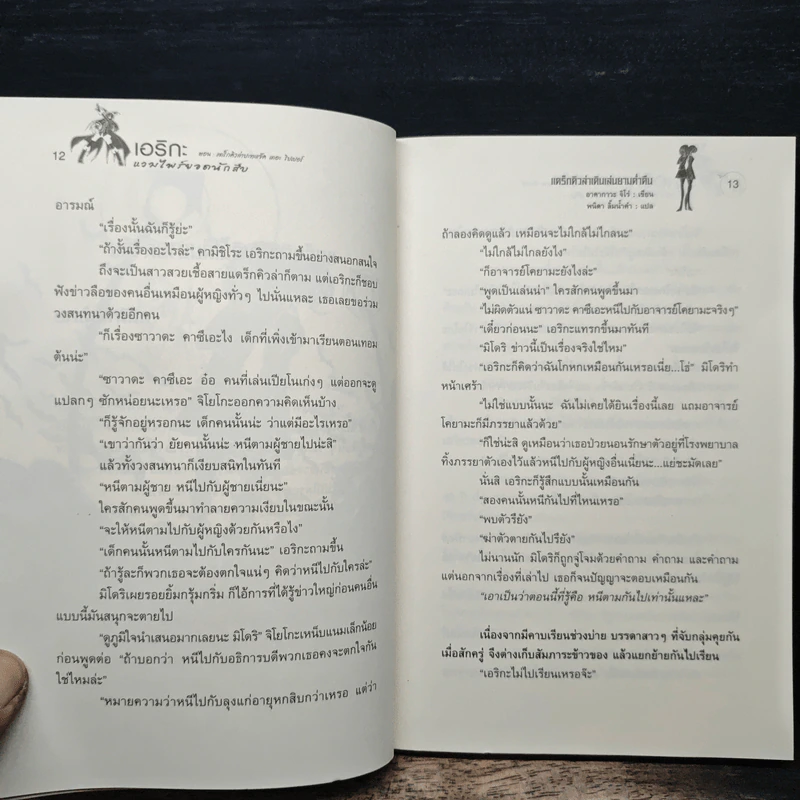 12
เอริกะ
แวมไพร์ยอดนักสืบ
อารมณ์
"เรื่องนั้นฉันก็รู้ย่ะ"
"ถ้างั้นเรื่องอะไรล่ะ" คามิชิโระ เอริกะถามขึ้นอย่างสนอกสนใจ
ถึงจะเป็นสาวสวยเชื้อสายแดร็กคิวล่าก็ตาม แต่เอริกะก็ชอบ
ฟังข่าวลือของคนอื่นเหมือนผู้หญิงทั่วๆ ไปนั่นแหละ เธอเลยขอร่วม
วงสนทนาด้วยอีกคน
"ก็เรื่องซาวาดะ คาซึเอะไง เด็กที่เพิ่งเข้ามาเรียนตอนเทอม
ต้นน่ะ"
"ซาวาดะ คาซึเอะ อ๋อ คนที่เล่นเปียโนเก่งๆ แต่ออกจะดู
แปลกๆ ซักหน่อยนะเหรอ" จิโยโกะออกความคิดเห็นบ้าง
"ก็รู้จักอยู่หรอกนะ เด็กคนนั้นน่ะ ว่าแต่มีอะไรเหรอ"
"เขาว่ากันว่า ยัยคนนั้นน่ะ หนีตามผู้ชายไปน่ะสิ"
แล้วทั้งวงสนทนาก็เงียบสนิทในทันที
"หนีตามผู้ชาย หนีไปกับผู้ชายเนี่ยนะ"
ใครสักคนพูดขึ้นมาทำลายความเงียบในขณะนั้น
"จะให้หนีตามไปกับผู้หญิงด้วยกันหรือไง"
"เด็กคนนั้นหนีตามไปกับใครกันนะ" เอริกะถามขึ้น
"ถ้ารู้ละก็พวกเธอจะต้องตกใจแน่ๆ คิดว่าหนีไปกับใครล่ะ"
มิโดริเผยรอยยิ้มกรุ้มกริ่ม ก็ไอ้การที่ได้รู้ข่าวใหญ่ก่อนคนอื่น
แบบนี้มันสนุกจะตายไป
"ดูภูมิใจนำเสนอมากเลยนะ มิโดริ" จิโยโกะเหน็บแนมเล็กน้อย
ก่อนพูดต่อ "ถ้าบอกว่า หนีไปกับอธิการบดีพวกเธอคงจะตกใจกัน
ใช่ไหมล่ะ"
"หมายความว่าหนีไปกับลุงแก่อายุหกสิบกว่าเหรอ แต่ว่า
แดร็กคิวล่าเดินเล่นยามค่ำคืน
อาคากาวะ จิโร่ : เขียน
พนิดา ลิ้มน้ำคำ : แปล
13
ถ้าลองคิดดูแล้ว เหมือนจะไม่ใกล้ไม่ไกลนะ"
"ไม่ใกล้ไม่ไกลยังไง"
"ก็อาจารย์โคยามะยังไงล่ะ"
"พูดเป็นเล่นน่า" ใครสักคนพูดขึ้นมา
"ไม่ผิดตัวแน่ ซาวาดะ คาซึเอะหนีไปกับอาจารย์โคยามะจริงๆ"
"เดี๋ยวก่อนนะ" เอริกะแทรกขึ้นมาทันที
"มิโดริ ข่าวนี้เป็นเรื่องจริงใช่ไหม"
"เอริกะก็คิดว่าฉันโกหกเหมือนกันเหรอเนี่ย...โธ่" มิโดริทำ
หน้าเศร้า
"ไม่ใช่แบบนั้นนะ ฉันไม่เคยได้ยินเรื่องนี้เลย แถมอาจารย์
โคยามะก็มีภรรยาแล้วด้วย"
"ก็ใช่น่ะสิ ดูเหมือนว่าเธอป่วยนอนรักษาตัวอยู่ที่โรงพยาบาล
ทิ้งภรรยาตัวเองไว้แล้วหนีไปกับผู้หญิงอื่นเนี่ยนะ...แย่ชะมัดเลย"
นั่นสิ เอริกะก็รู้สึกแบบนั้นเหมือนกัน
"สองคนนั้นหนีกันไปที่ไหนเหรอ"
"พบตัวรึยัง"
"ฆ่าตัวตายกันไปรึยัง"
ไม่นานนัก มิโดริก็ถูกจู่โจมด้วยคำถาม คำถาม และคำถาม
แต่นอกจากเรื่องที่เล่าไป เธอก็จนปัญญาจะตอบเหมือนกัน
"เอาเป็นว่าตอนนี้ที่รู้คือ หนีตามกันไปเท่านั้นแหละ"
เนื่องจากมีคาบเรียนช่วงบ่าย บรรดาสาวๆ ที่จับกลุ่มคุยกัน
เมื่อสักครู่ จึงต่างเก็บสัมภาระข้าวของ แล้วแยกย้ายกันไปเรียน
"เอริกะไม่ไปเรียนเหรอจ๊ะ"